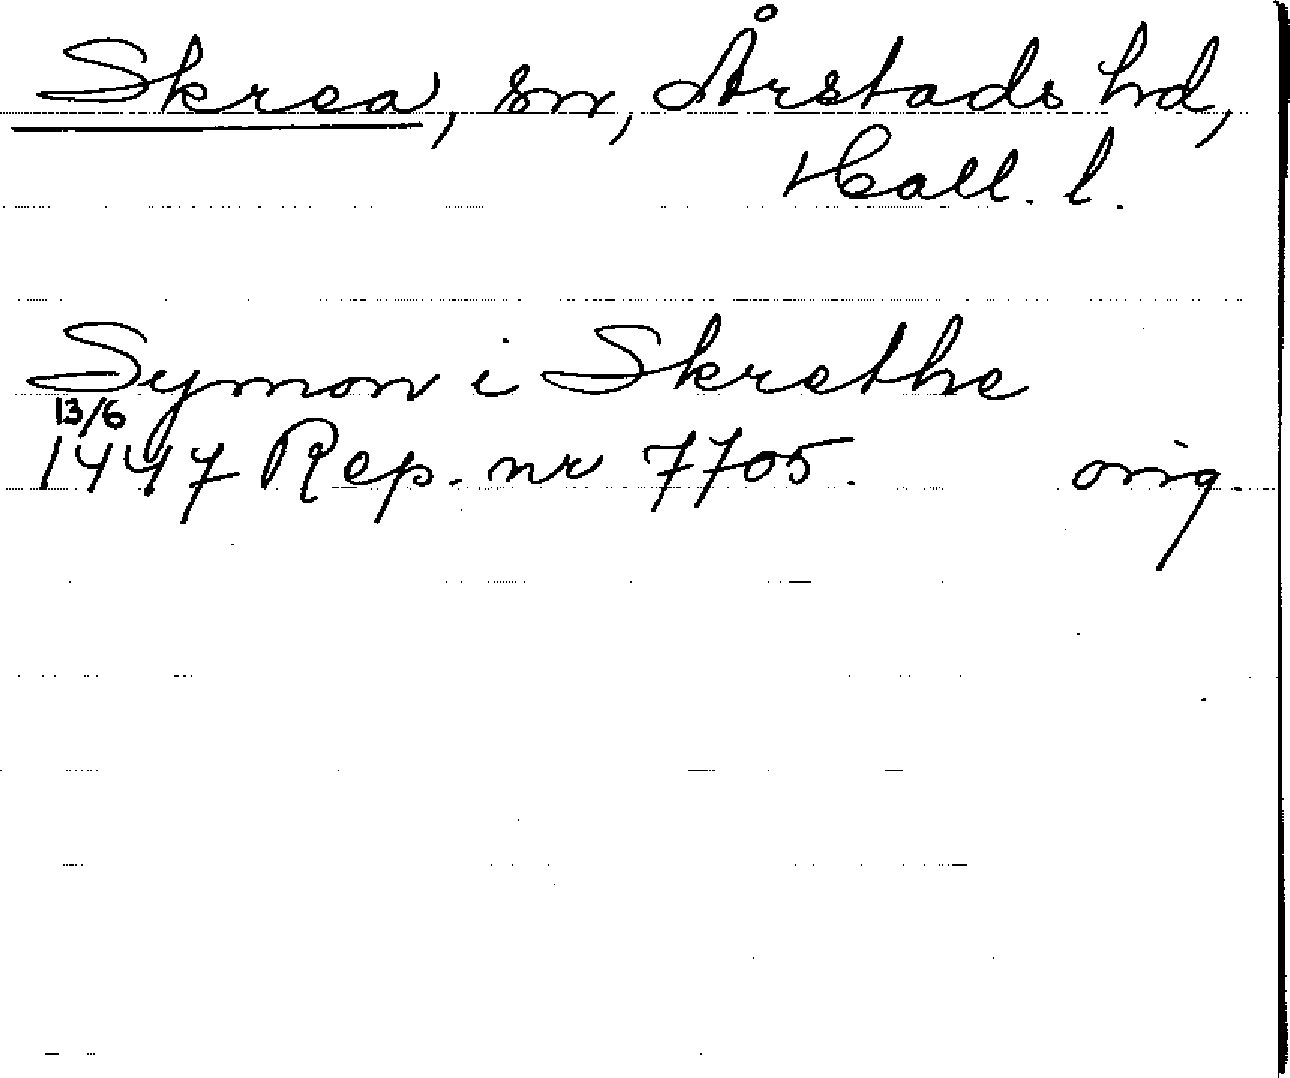 Skrea, sn, Årstads hd,
Hall. l.
Symon i Skrethe
13/6
1447 Rep. nr 7705. orig.